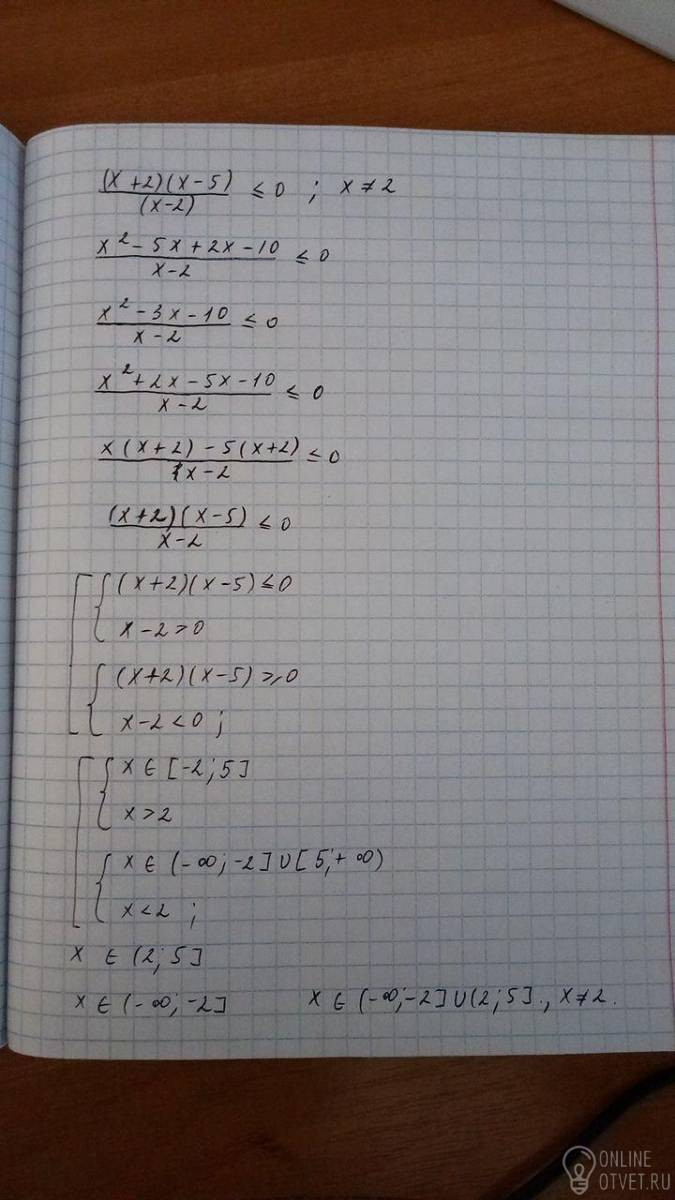 (x+2)(x-5)/(x-2) ≤ 0 ; x ≠ 2
x² - 5x + 2x - 10/x-2 ≤ 0
x² - 3x - 10/x-2 ≤ 0
x² + 2x - 5x - 10/x-2 ≤ 0
x(x+2) - 5(x+2)/x-2 ≤ 0
(x+2)(x-5)/x-2 ≤ 0
(x+2)(x-5) ≤ 0
x-2 > 0
(x+2)(x-5) ≥ 0
x-2 < 0 ;
x ∈ [-2; 5]
x > 2
x ∈ (-∞; -2] ∪ [5; +∞)
x < 2 ;
x ∈ (2; 5]
x ∈ (-∞; -2] x ∈ (-∞; -2] ∪ (2; 5]., x ≠ 2.
ONLINE
OTVET.RU